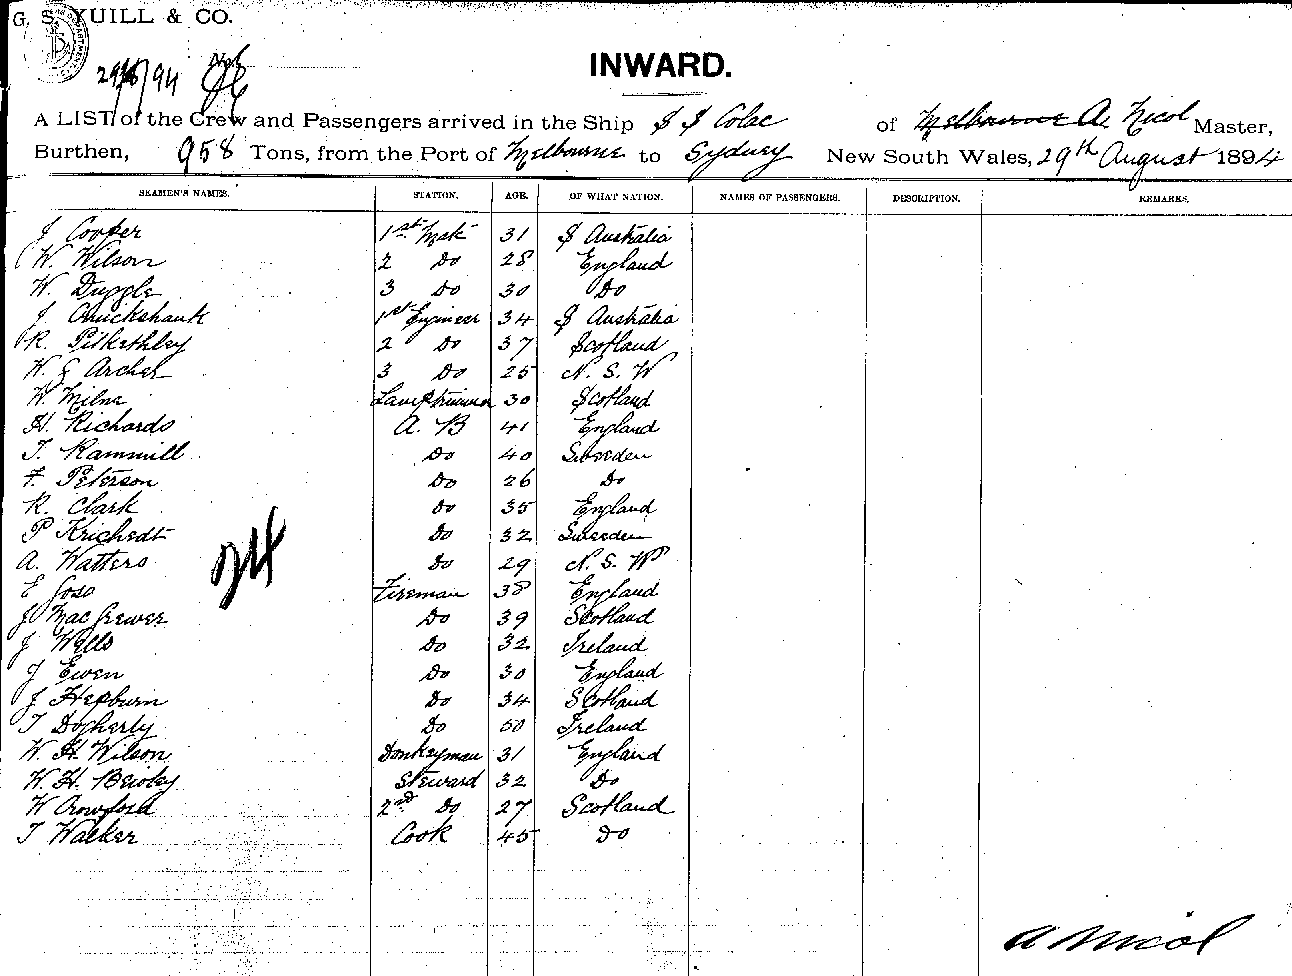 G. S. YUILL & CO.
29/8/94
INWARD.
A LIST of the Crew and Passengers arrived in the Ship S S Colac of Melbourne A. Nicol Master,
Burthen, 958 Tons, from the Port of Melbourne to Sydney New South Wales, 29th August 1894
SEAMEN'S NAMES. STATION. AGE. OF WHAT NATION. NAMES OF PASSENGERS. DESCRIPTION. REMARKS.
J Cooper 1st Mate 31 S Australia
W. Wilson 2 Do 28 England
W. Duggle 3 Do 30 Do
J Cruickshank 1st Engineer 34 S Australia
R. Pitkethley 2 Do 37 Scotland
W. G Archer 3 Do 25 N. S. W
W. Milne 30 Scotland
H. Richards A. B 41 England
T. Rammill Do 40 Sweeden
F. Peterson Do 26 Do
R. Clark Do 35 England
P Krichedt Do 32 Sweeden
A. Watters Do 29 N. S. W
E Goss Fireman 38 England
J MacGrewer Do 39 Scotland
J Wells Do 32 Ireland
J Ewen Do 30 England
J Hepburn Do 34 Scotland
T Dogherty Do 50 Ireland
W. H. Wilson Donkeyman 31 England
W. H. Bewley Steward 32 Do
W Crowford 2nd Do 27 Scotland
T Walker Cook 45 Do
24
A Nicol